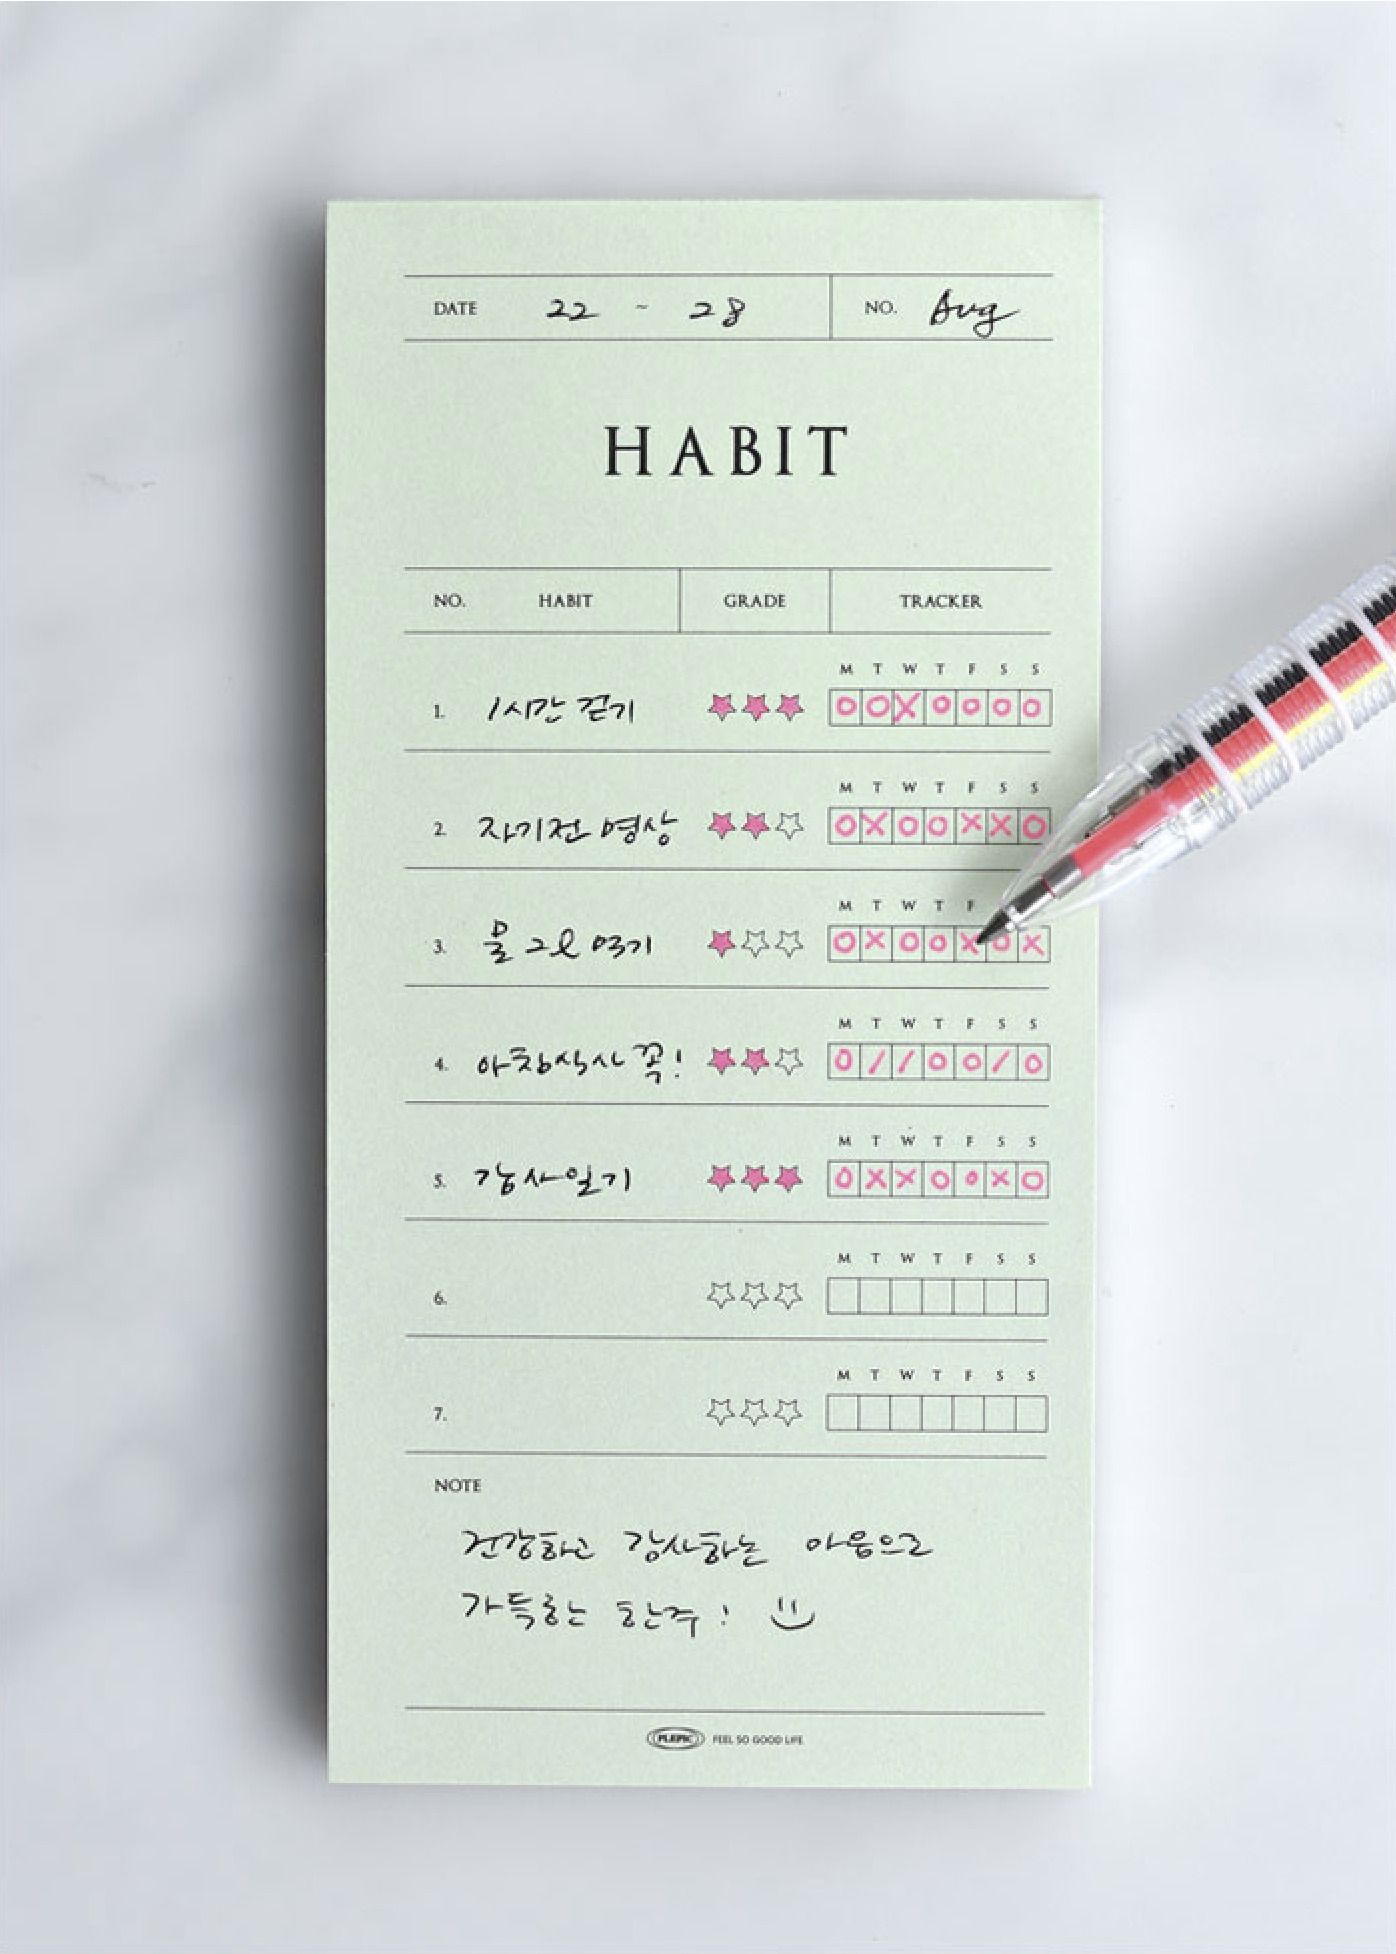 DATE 22 ~ 28 NO. Aug
HABIT
NO. HABIT GRADE TRACKER
M T W T F S S
1. 1시간 걷기 O O X O O O O
M T W T F S S
2. 자기전 명상 O X O O X X O
M T W T F S
3. 물 2L 먹기 O X O O X O X
M T W T F S S
4. 아침식사 꼭! O / / O O / O
M T W T F S S
5. 감사일기 O X X O O X O
M T W T F S S
6.
M T W T F S S
7.
NOTE
건강하고 감사하는 마음으로
가득하는 한주! :)
PLEPIC FEEL SO GOOD LIFE